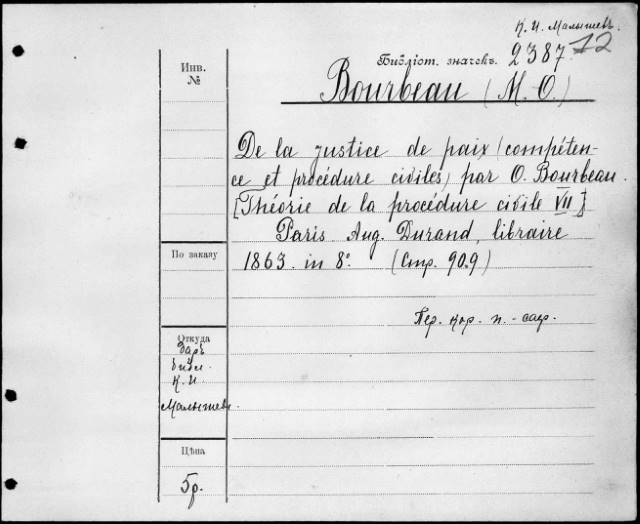 К. И. Малышевъ.
Библіот. значекъ. 2387 12
Инв.
№
Bourbeau (M. O.)
De la justice de paix (compéten-
ce et procédure civiles) par O. Bourbeau.
[Théorie de la procédure civile VII]
Paris Aug. Durand, libraire
По заказу
1863 in 8°. (Стр. 909)
Пер. кор. п. - сафр.
Откуда
Даръ
библ.
К. И.
Малышева
Цѣна
5р.